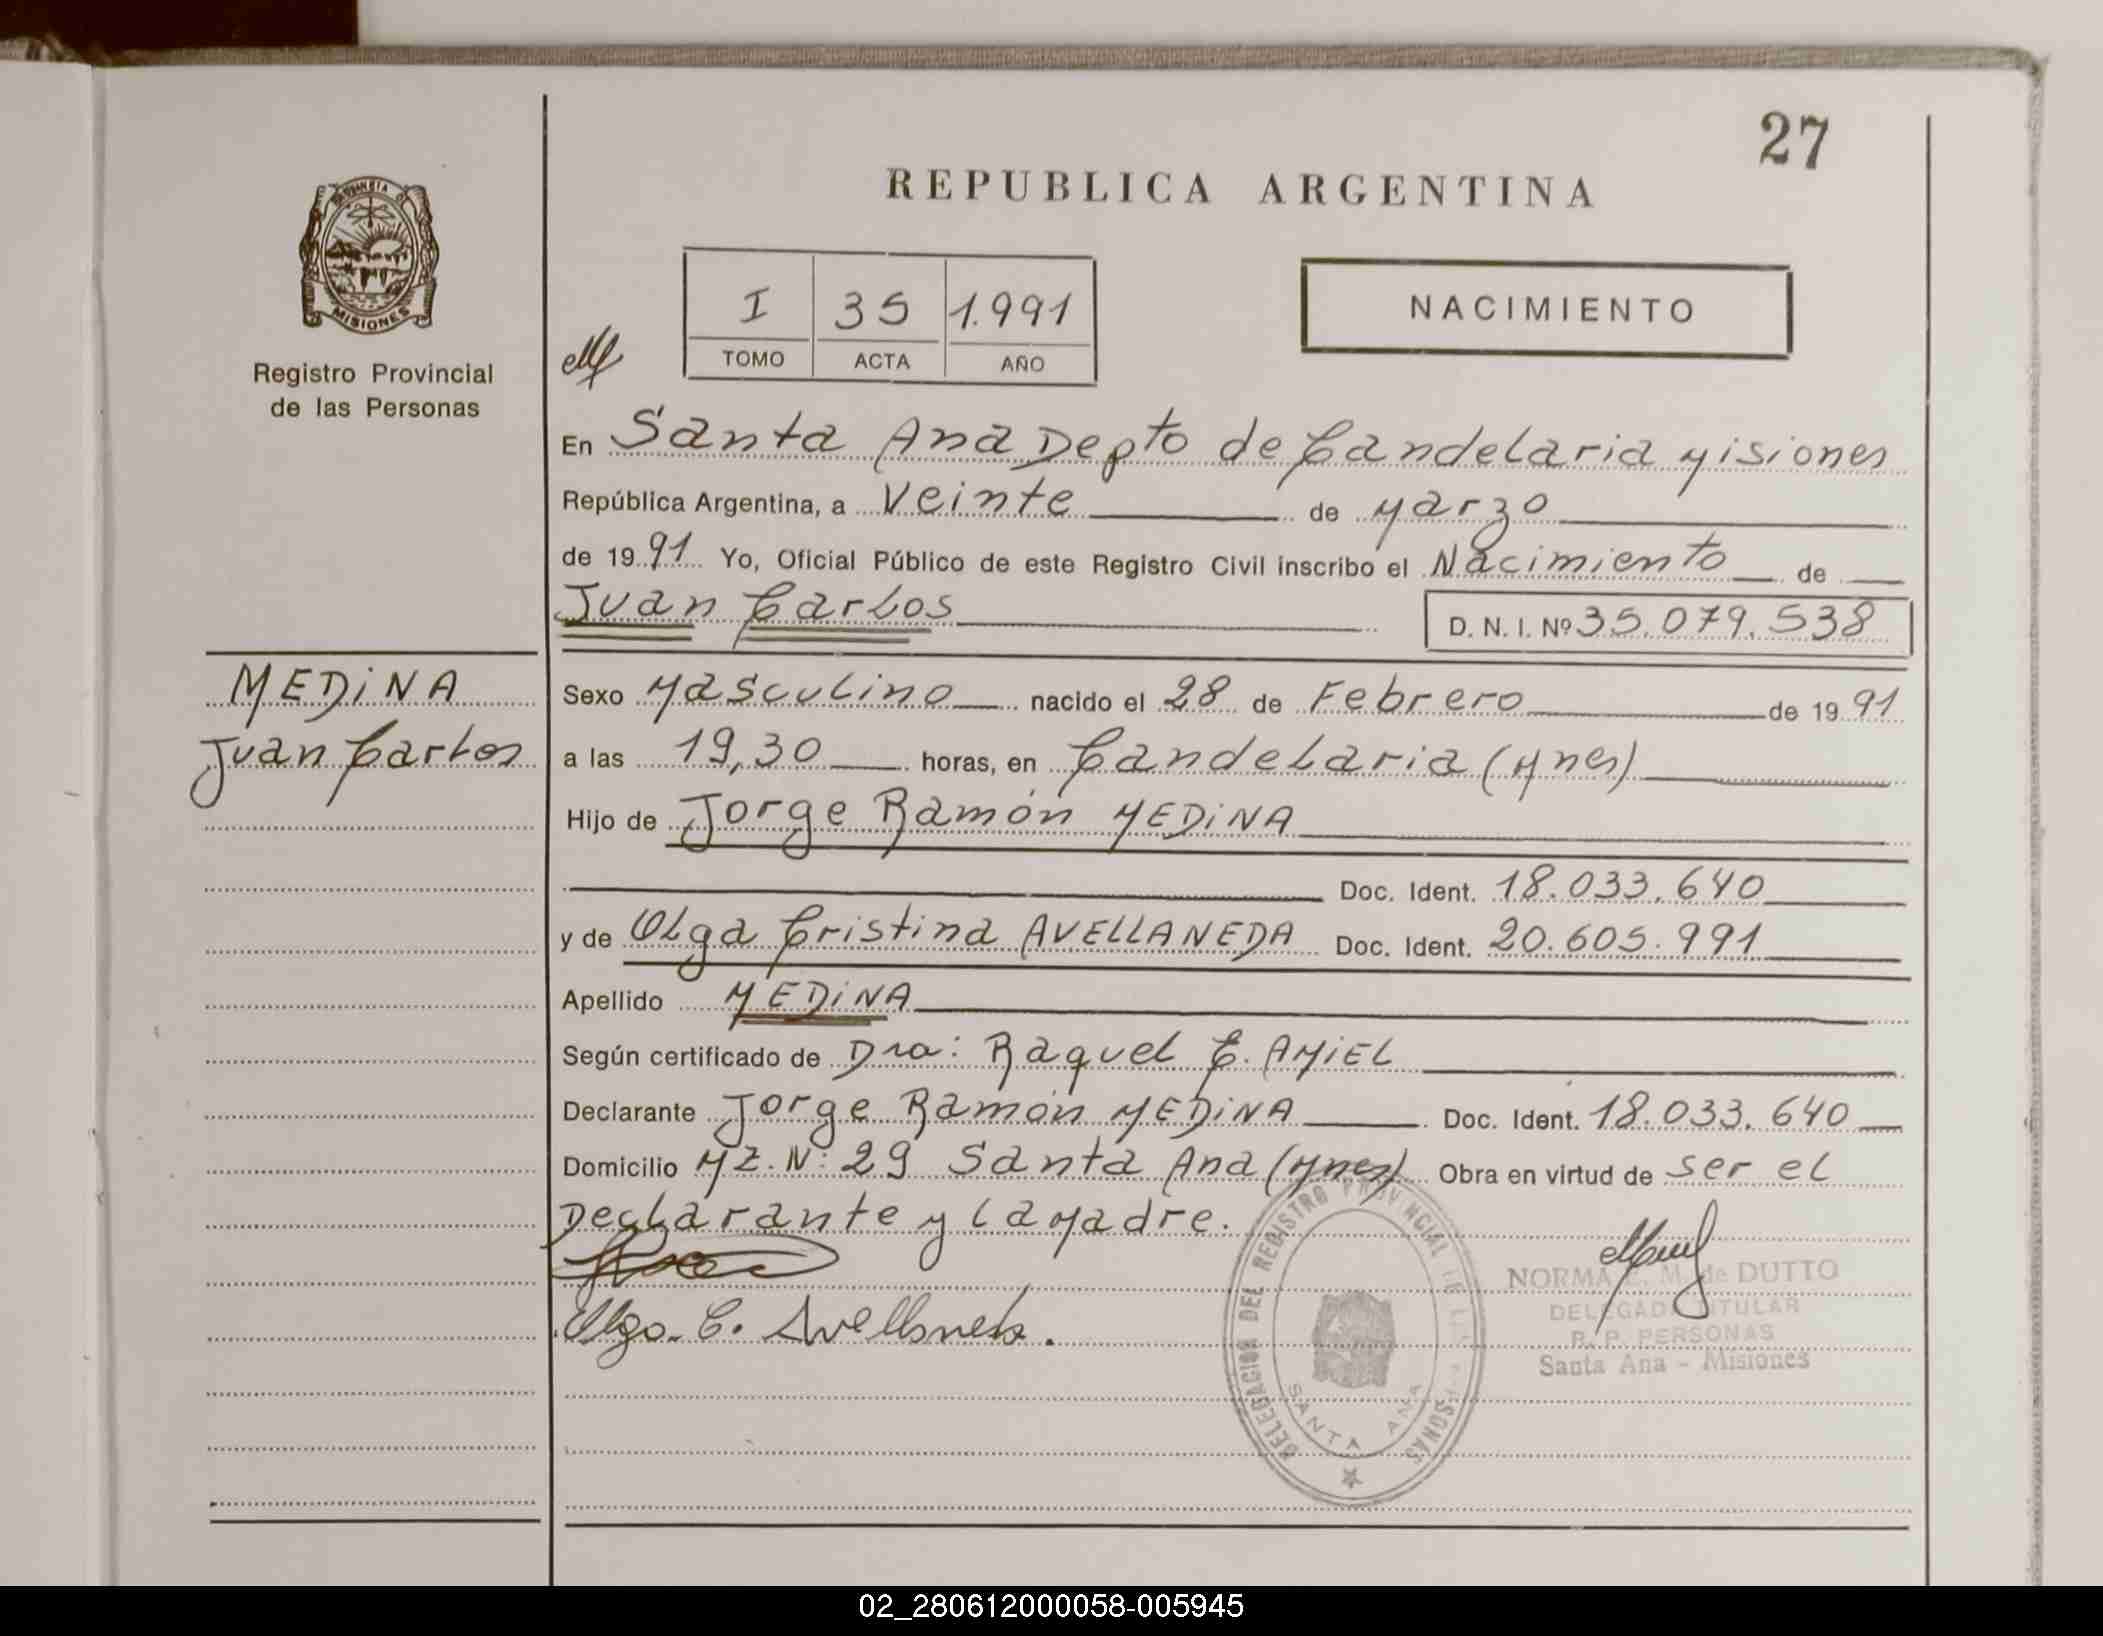 27
REPUBLICA ARGENTINA
PROVINCIA DE
MISIONES
Registro Provincial
de las Personas
I 35 1.991
TOMO ACTA AÑO
NACIMIENTO
En Santa Ana Depto de Candelaria Misiones
República Argentina, a Veinte de Marzo
de 1991 Yo, Oficial Público de este Registro Civil inscribo el Nacimiento de
Juan Carlos D. N. I. Nº 35.079.538
MEDiNA
Juan Carlos
Sexo Masculino nacido el 28 de Febrero de 1991
a las 19,30 horas, en Candelaria (Mnes)
Hijo de Jorge Ramón MEDiNA
Doc. Ident. 18.033.640
y de Olga Cristina AVELLANEDA Doc. Ident. 20.605.991
Apellido MEDiNA
Según certificado de Dra: Raquel C. AMiEL
Declarante Jorge Ramón MEDiNA Doc. Ident. 18.033.640
Domicilio MZ. Nº 29 Santa Ana (Mnes) Obra en virtud de ser el
Declarante y la Madre.
Olga C. Avellaneda.
DELEGACION DEL REGISTRO PROVINCIAL DE LAS PERSONAS
SANTA ANA
NORMA E. M. de DUTTO
DELEGADA TITULAR
R. P. PERSONAS
Santa Ana - Misiones
02_280612000058-005945